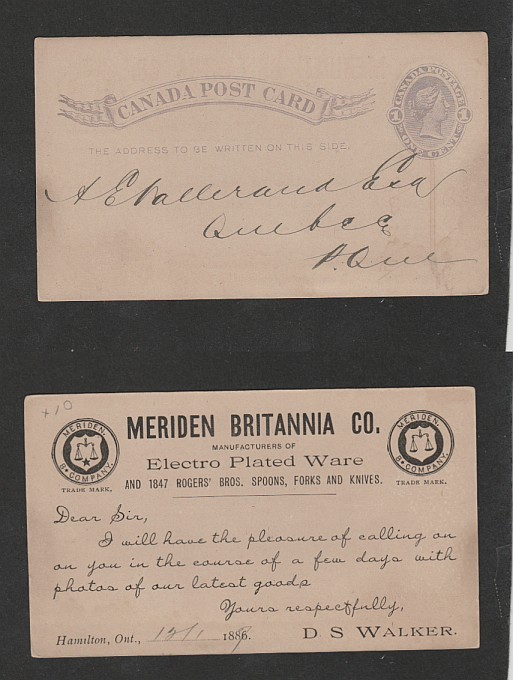 CANADA POST CARD
CANADA POSTAGE
1
1
ONE CENT
THE ADDRESS TO BE WRITTEN ON THIS SIDE.
A E Vallerand Esq
Quebec
P. Que
+10
MERIDEN BRITANNIA CO.
MANUFACTURERS OF
Electro Plated Ware
AND 1847 ROGERS' BROS. SPOONS, FORKS AND KNIVES.
MERIDEN. B. COMPANY.
TRADE MARK.
MERIDEN. B. COMPANY.
TRADE MARK.
Dear Sir,
I will have the pleasure of calling on
on you in the course of a few days with
photos of our latest goods
Yours respectfully,
Hamilton, Ont., 12/1 1889.
D S WALKER.